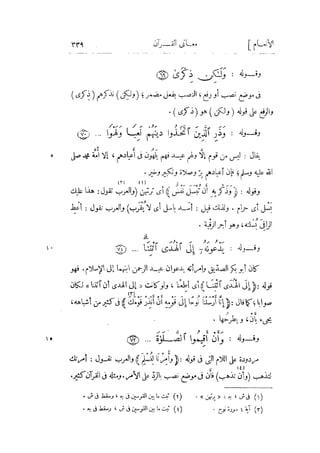 الأنعام ] معانى القــرآن ٣٣٩
وقــوله : وَلَٰكِن ذِكْرَىٰ ٦٩
فى موضع نصب أو رفع ؛ النصب بفعل مضمر ؛ ( ولكن ) نذكرهم ( ذكرى )
والرفع على قوله ( ولكن ) هو ( ذكرى ) .
وقــوله : وَذَرِ الَّذِينَ اتَّخَذُوا دِينَهُمْ لَعِبًا وَلَهْوًا ... ٧٠
يقال : ليس من قوم إلّا ولهم عيــد فهم يلهون فى أعيادهم ، إلا أمّة محمد صلى ٥
الله عليه وسلم ؛ فإن أعيادهم برّ وصلاة وتكبير وخير .
وقوله : ﴿ وَذَكِّرْ بِهِ أَن تُبْسَلَ نَفْسٌ ﴾ أى ترتهن (١) (والعرب تقول : هذا عليك (٢)
بَسْل أى حرام . ولذلك قيل : أســد باسل أى لا يُقرَب) والعرب تقول : أعط
الراقى بُسْلته ، وهو أجر الرقية .
وقــوله : يَدْعُونَهُ إِلَى الْهُدَى ائْتِنَا ... ٧١ ١٠
كان أبو بكر الصدّيق وامرأته يدعوان عبــد الرحمن ابنهما إلى الإسلام . فهو
قوله : ﴿ إِلَى الْهُدَى ائْتِنَا ﴾ أى أطِعْنا ، ولو كانت « إلى الهدى أن ائتنا » لكان
صوابا ؛ كما قال : ﴿ إِنَّا أَرْسَلْنَا نُوحًا إِلَى قَوْمِهِ أَنْ أَنْذِرْ قَوْمَكَ ﴾ (٣) فى كثير من أشباهه ،
يجىء بأن ، وبطرحها .
وقــوله : وَأَنْ أَقِيمُوا الصَّــلَوٰةَ ... ٧٢ ١٥
مردودة على اللام التى فى قوله : ﴿ وَأُمِرْنَا لِنُسْلِمَ ﴾ والعرب تقــول : أمرتك
لتذهب (وأن تذهب) (٤) فأن فى موضع نصب بالردّ على الأمر. ومثله فى القرآن كثير.
(١) فى ش ، جـ : « يرتهن » . (٢) ثبت ما بين القوسين فى جـ ، وسقط فى ش .
(٣) آية ١ سورة نوح . (٤) ثبت ما بين القوسين فى ش ، وسقط فى جـ .